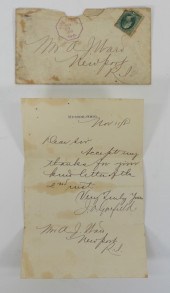 Mr A J Ward
Newport
R.I.
Nov 11/80
Dear Sir
Accept my
thanks for your
kind letter of the
2nd inst.
Very Truly Yours
J. A. Garfield
Mr. A. J. Ward
Newport
R.I.